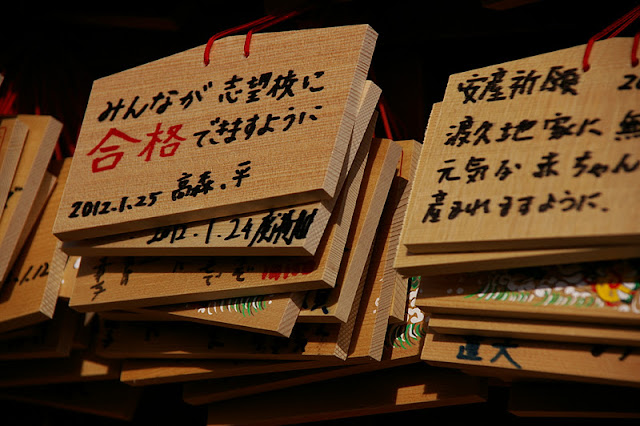 みんなが 志望校に
合格できますように
2012.1.25 高森.平
2012.1.24
安産祈願
渡久地家に 無
元気な 赤ちゃん
産まれますように.
1.12